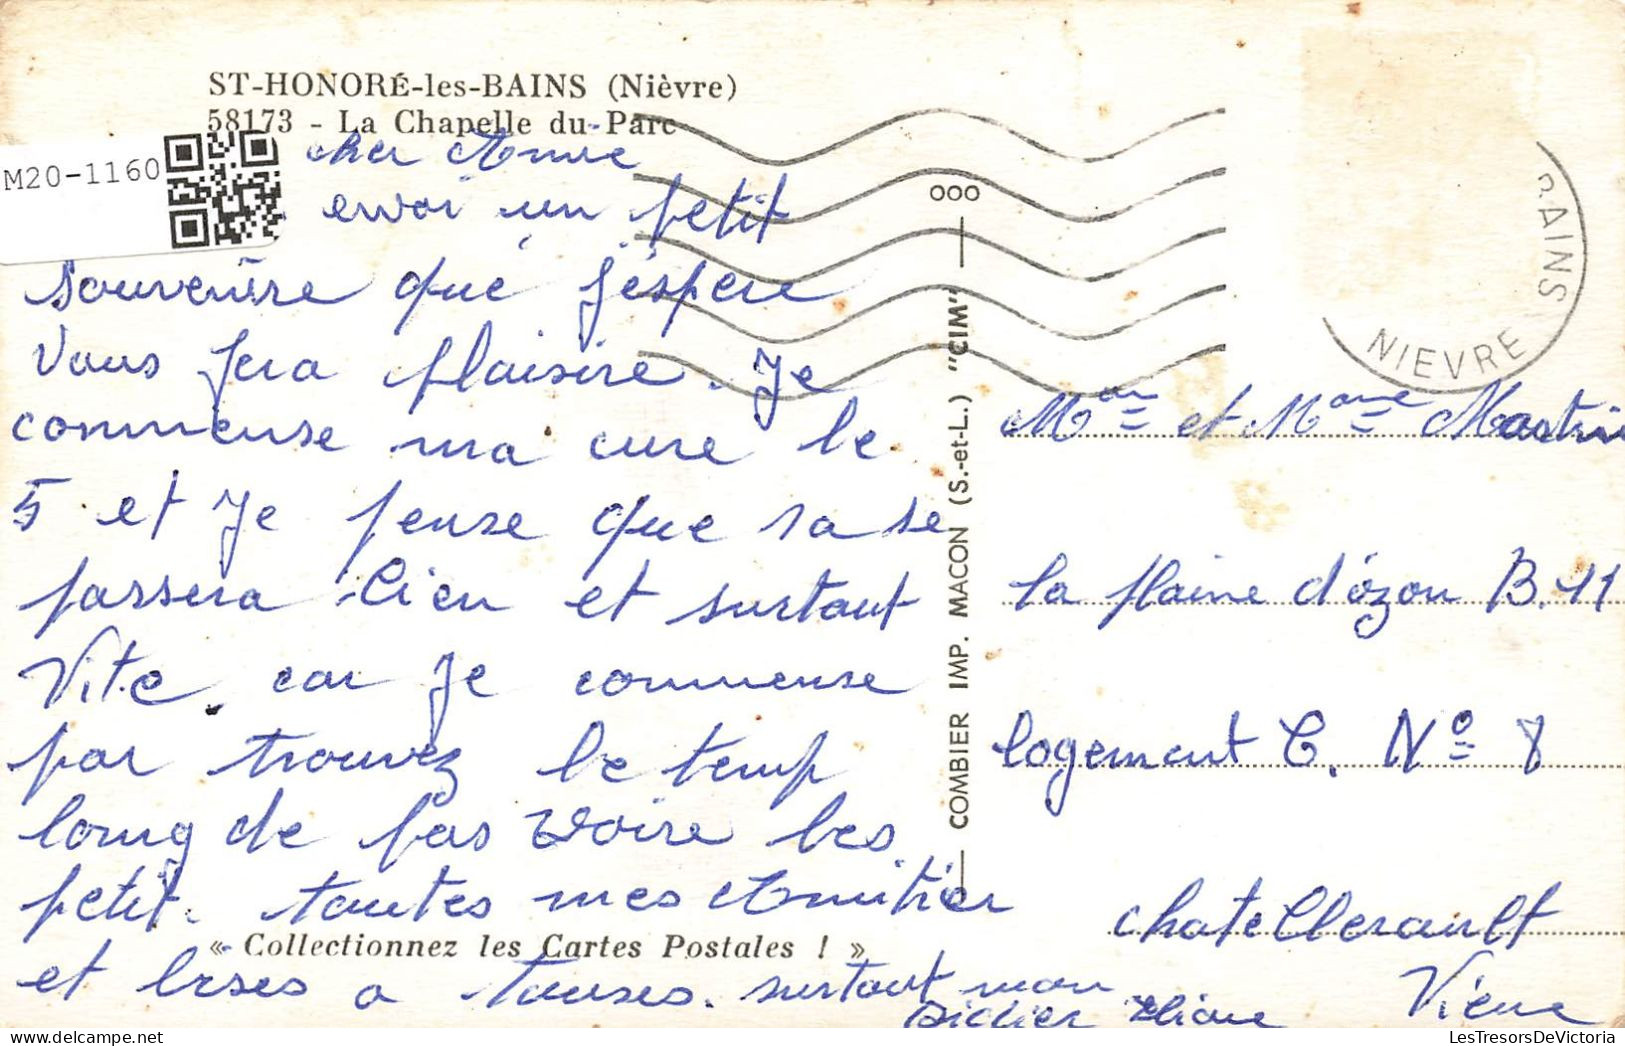 ST-HONORÉ-les-BAINS (Nièvre)
58173 - La Chapelle du Parc
M20-1160
cher Amie
envoi un petit
souvenire que j'éspere
vous fera plaisire. Je
commense ma cure le
5 et Je pense que sa se
passera bien et surtout
Vite. car je commense
par trouvez le temp
long de pas voire les
petit. toutes mes Amitier
« Collectionnez les Cartes Postales ! »
et bises a touses. surtout mon
Didier Eliane
COMBIER IMP. MACON (S.-et-L.) "CIM"
BAINS
NIEVRE
et Mme
la plaine d'ozon B. 11
logement C. No 8
chatellerault
Viene
LesTresorsDeVictoria